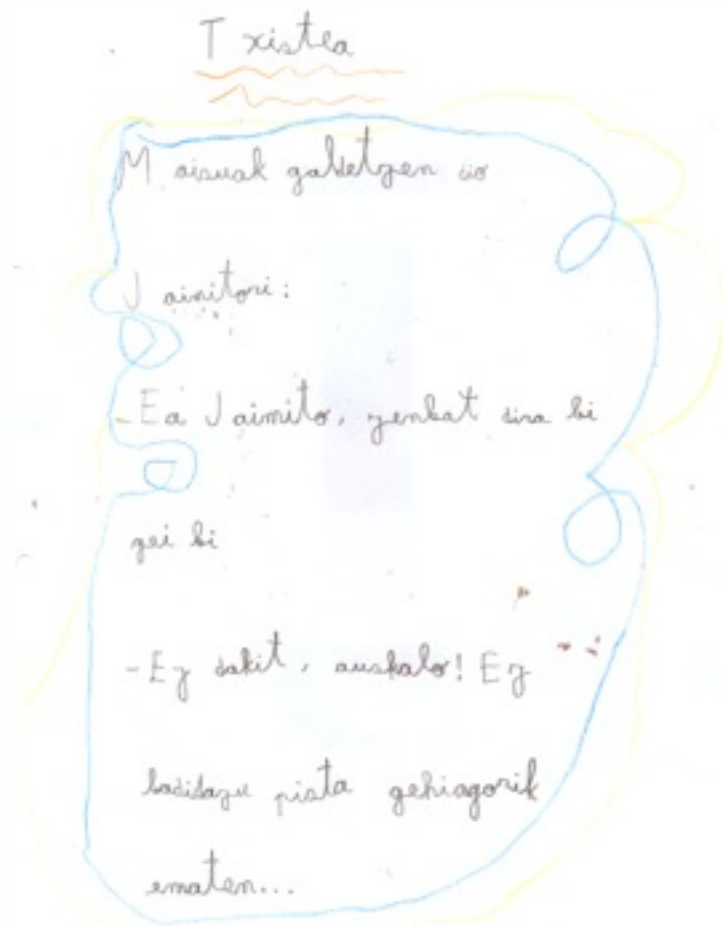 Txistea
Maisuak galdetzen dio
Jaimitori:
-Ea Jaimito, zenbat dira bi
gei bi
-Ez dakit, auskalo! Ez
badidazu pista gehiagorik
ematen...